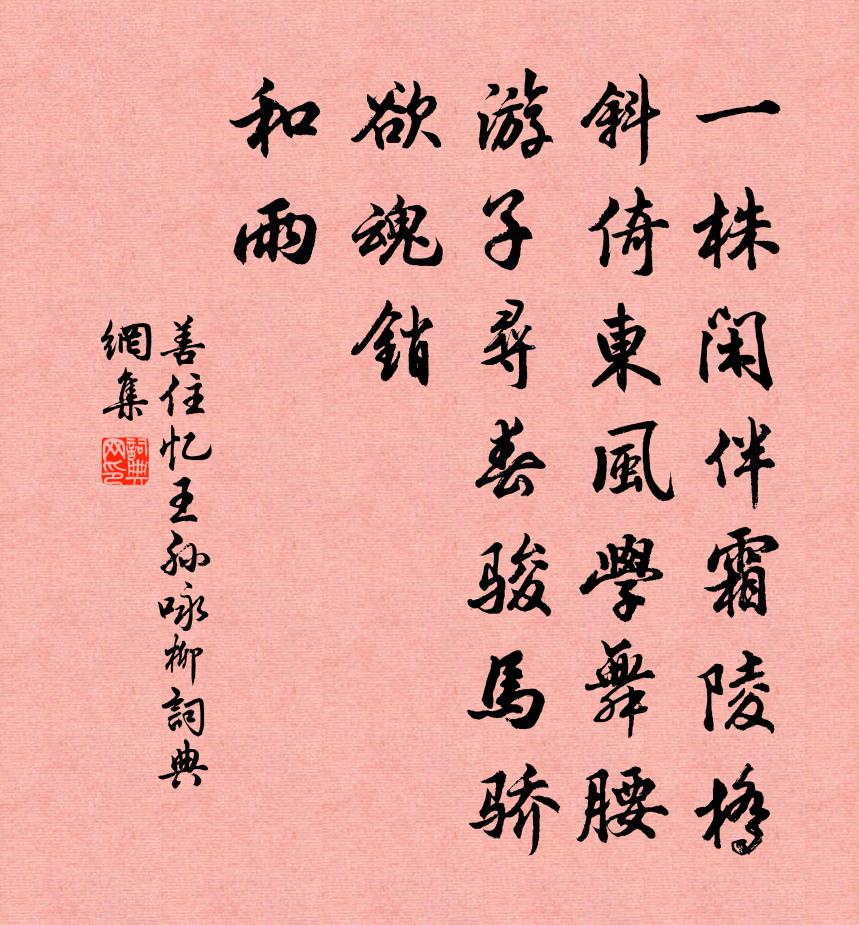 一株閑伴霜陵橋
斜倚東風學舞腰
游子尋春骏馬骄
欲魂銷
和雨
善住忆王孙咏柳詞典
網集
詞典
网印